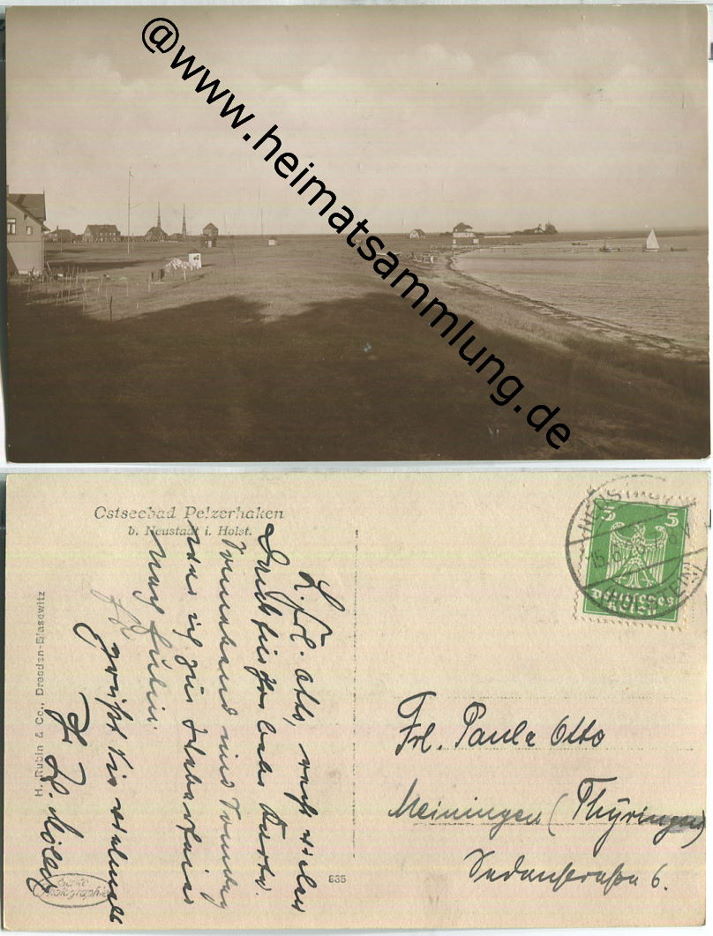 @www.heimatsammlung.de
Ostseebad Pelzerhaken
b. Neustadt i. Holst.
H. Rubin & Co., Dresden-Blasewitz
L. Frl. Otto, recht vielen
Dank für Ihre liebe Karte.
Sonnabend und Sonntag
war ich zur
nach
grüßt Sie vielmals
Ihr
835
5 5
DEUTSCHES
REICH
Frl. Paula Otto
Meiningen (Thüringen)
Sedanstraße 6.